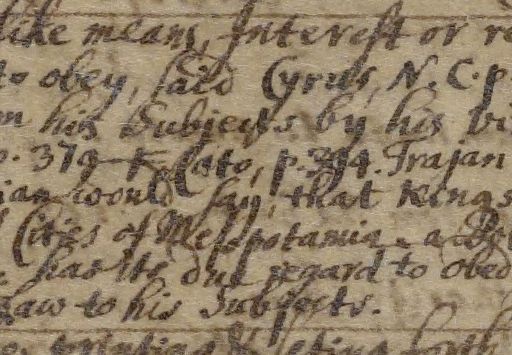 like means, Interest or re
to obey, said Cyrus, N. C. p
m his Subjects by his vi
p. 379 Cato, p. 394. Trajan
ian would say, that Kings
Cities of Mesopotamia
has its due regard to obed
Law to his Subjects.